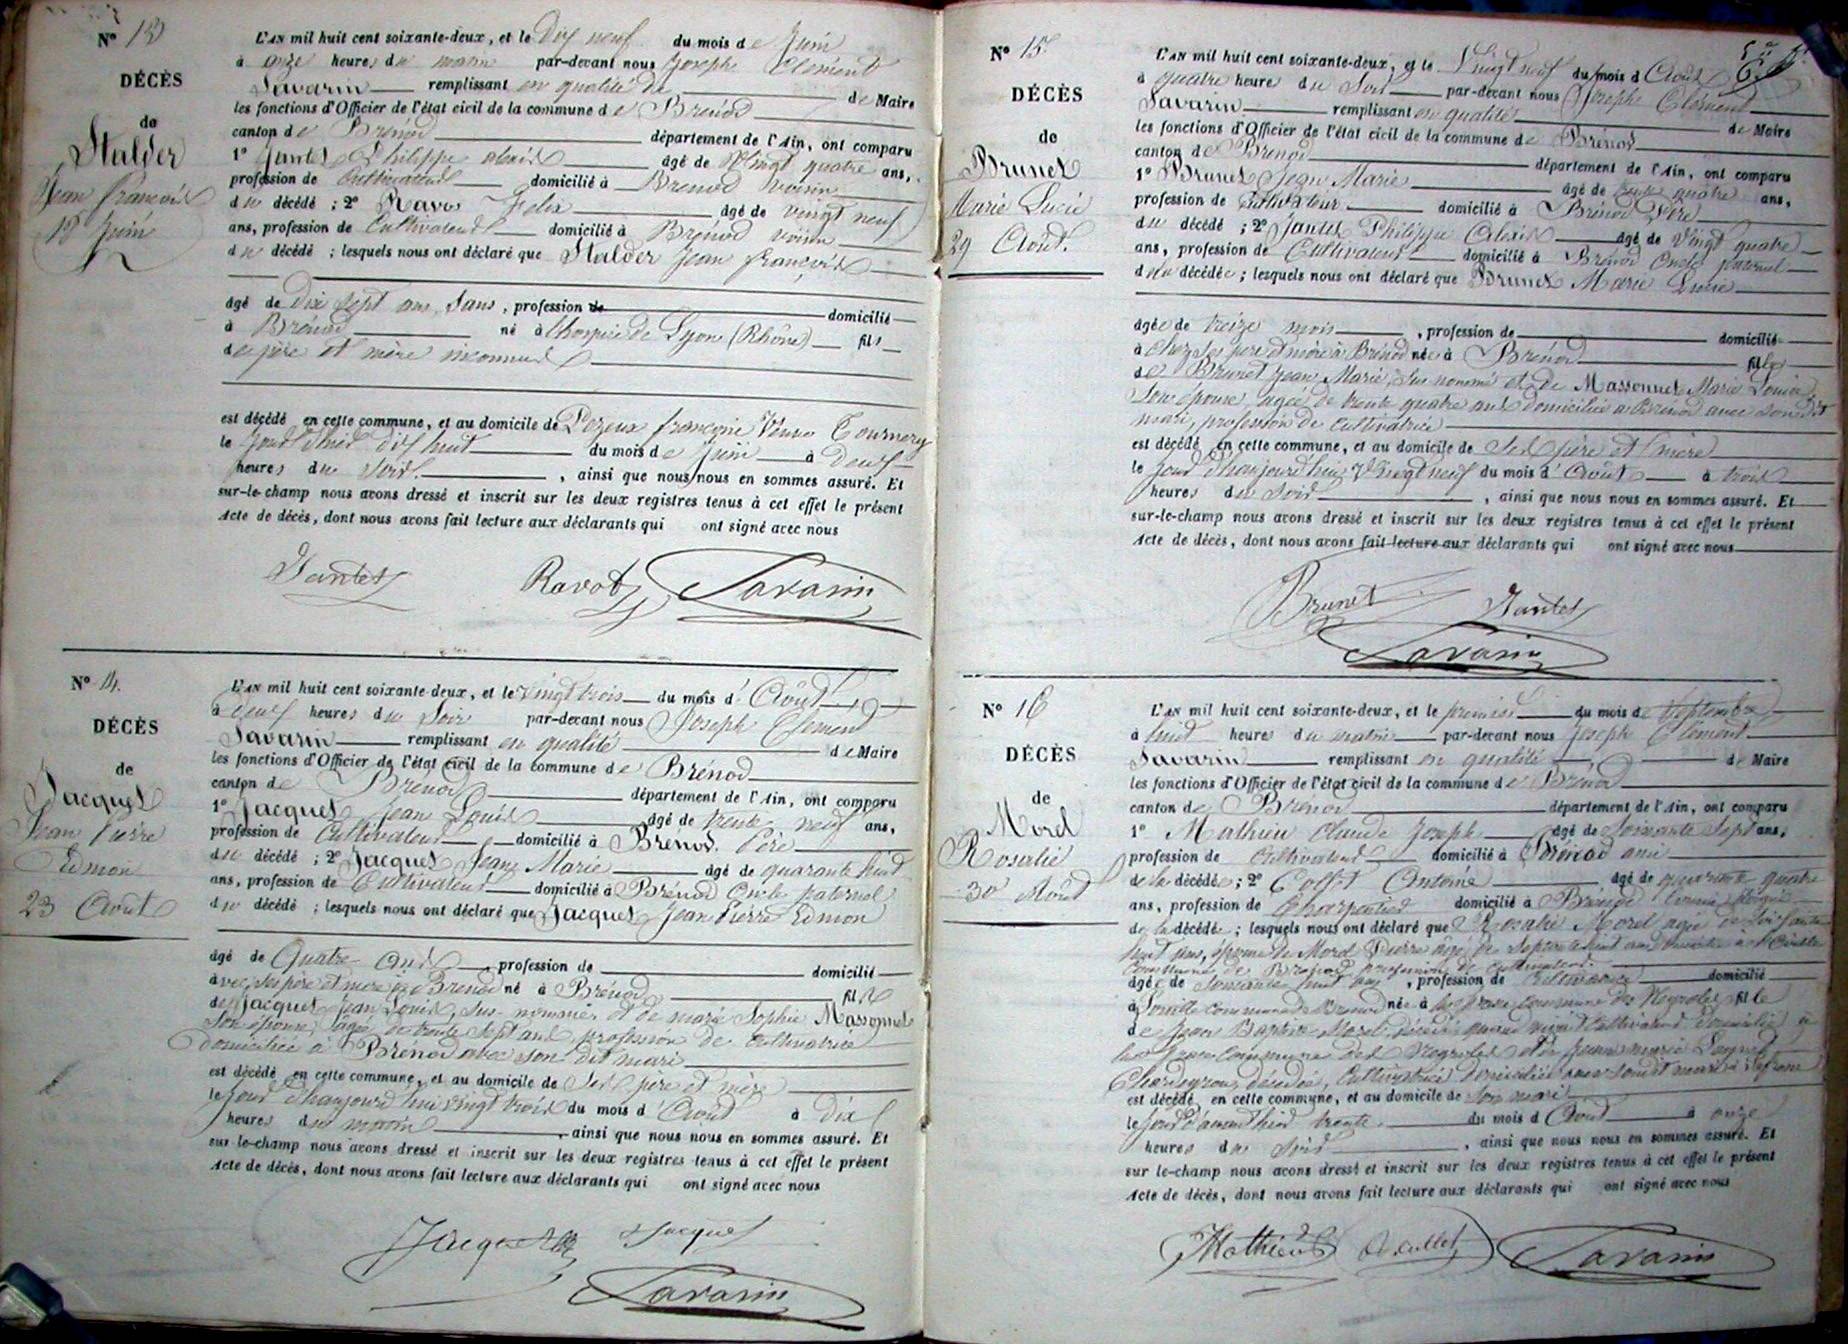 Nº 13
DÉCÈS
de
Stalder
Jean François
18 Juin
L'AN mil huit cent soixante-deux, et le Dix neuf du mois de Juin
à onze heures du matin par-devant nous Joseph Clément
Savarin remplissant en qualité de de Maire
les fonctions d'Officier de l'état civil de la commune de Brénod
canton de Brénod département de l'Ain, ont comparu
1º Jantet Philippe Alexis âgé de Vingt quatre ans,
profession de Cultivateur domicilié à Brénod voisin
du décédé ; 2º Ravot Felix âgé de vingt neuf
ans, profession de Cultivateur domicilié à Brénod voisin
du décédé ; lesquels nous ont déclaré que Stalder Jean François
âgé de Dix sept ans, Sans, profession de domicilié
à Brénod né à l'hospice de Lyon (Rhône) fils
de père et mère inconnus
est décédé en cette commune, et au domicile de françoise Veuve Tournery
le jour d'hier dix huit du mois de Juin à deux
heures du Soir, ainsi que nous nous en sommes assuré. Et
sur-le-champ nous avons dressé et inscrit sur les deux registres tenus à cet effet le présent
Acte de décès, dont nous avons fait lecture aux déclarants qui ont signé avec nous
Jantet Ravot Savarin
Nº 14.
DÉCÈS
de
Jacquet
Jean Pierre
Edmon
23 Août
L'AN mil huit cent soixante-deux, et le Vingt trois du mois d'Août
à deux heures du Soir par-devant nous Joseph Clément
Savarin remplissant en qualité de Maire
les fonctions d'Officier de l'état civil de la commune de Brénod
canton de Brénod département de l'Ain, ont comparu
1º Jacquet Jean Louis âgé de trente neuf ans,
profession de Cultivateur domicilié à Brénod. Père
du décédé ; 2º Jacquet Jean Marie âgé de quarante huit
ans, profession de Cultivateur domicilié à Brénod Oncle paternel
du décédé ; lesquels nous ont déclaré que Jacquet Jean Pierre Edmon
âgé de Quatre Ans profession de domicilié
avec ses père et mère à Brénod né à Brénod fils
de Jacquet Jean Louis, sus-nommé et de marie Sophie Massonnet
Son épouse, âgée de trente Sept ans profession de cultivatrice
domiciliée à Brénod avec son dit mari
est décédé en cette commune, et au domicile de Ses père et mère
le jour d'haujourd'hui vingt trois du mois d'Août à dix
heures du matin, ainsi que nous nous en sommes assuré. Et
sur-le-champ nous avons dressé et inscrit sur les deux registres tenus à cet effet le présent
Acte de décès, dont nous avons fait lecture aux déclarants qui ont signé avec nous
Jacquet Jacquet
Savarin
Nº 15.
DÉCÈS
de
Brunet
Marie Lucie
29 Août.
L'AN mil huit cent soixante-deux, et le Vingt neuf du mois d'Août
à quatre heures du Soir par-devant nous Joseph Clément
Savarin remplissant en qualité de Maire
les fonctions d'Officier de l'état civil de la commune de Brénod
canton de Brénod département de l'Ain, ont comparu
1º Brunet Jean Marie âgé de trente quatre ans,
profession de Cultivateur domicilié à Brénod Père
du décédé ; 2º Jantet Philippe Alexis âgé de Vingt quatre
ans, profession de Cultivateur domicilié à Brénod Oncle paternel
de la décédée ; lesquels nous ont déclaré que Brunet Marie Lucie
âgée de treize mois, profession de domicilié
à chez ses père et mère à Brénod née à Brénod fille
de Brunet Jean Marie, sus nommé et de Massonnet Marie Louise
Son épouse, agée de trente quatre ans domiciliée à Brénod avec son dit
mari, profession de cultivatrice
est décédé en cette commune, et au domicile de Ses père et mère
le jour d'haujourd'hui Vingt neuf du mois d'Août à trois
heures du Soir, ainsi que nous nous en sommes assuré. Et
sur-le-champ nous avons dressé et inscrit sur les deux registres tenus à cet effet le présent
Acte de décès, dont nous avons fait lecture aux déclarants qui ont signé avec nous
Brunet Jantet
Savarin
Nº 16
DÉCÈS
de
Morel
Rosalie
30 Août
L'AN mil huit cent soixante-deux, et le premier du mois de Septembre
à huit heures du matin par-devant nous Joseph Clément
Savarin remplissant en qualité de Maire
les fonctions d'Officier de l'état civil de la commune de Brénod
canton de Brénod département de l'Ain, ont comparu
1º Mathieu Claude Joseph âgé de Soixante Sept ans,
profession de Cultivateur domicilié à Brénod ami
de la décédée ; 2º Collet Antoine âgé de quarante quatre
ans, profession de Charpentier domicilié à Brénod
de la décédée ; lesquels nous ont déclaré que Rosalie Morel agée de Soixante
huit ans, épouse de Morel Pierre âgé de Septante huit ans
commune de Brénod profession de cultivateur
âgée de soixante huit ans, profession de Cultivatrice domicilié
à commune de Brénod née à commune des Neyrolles fille
de Jean Baptiste Morel, décédé quand vivait Cultivateur domicilié à
commune des Neyrolles et de Jeanne marie
décédée, Cultivatrice domiciliée avec son dit mari à
est décédé en cette commune, et au domicile de Son mari
le jour d'avant hier trente du mois d'Août à onze
heures du Soir, ainsi que nous nous en sommes assuré. Et
sur le-champ nous avons dressé et inscrit sur les deux registres tenus à cet effet le présent
Acte de décès, dont nous avons fait lecture aux déclarants qui ont signé avec nous
Mathieu Collet Savarin